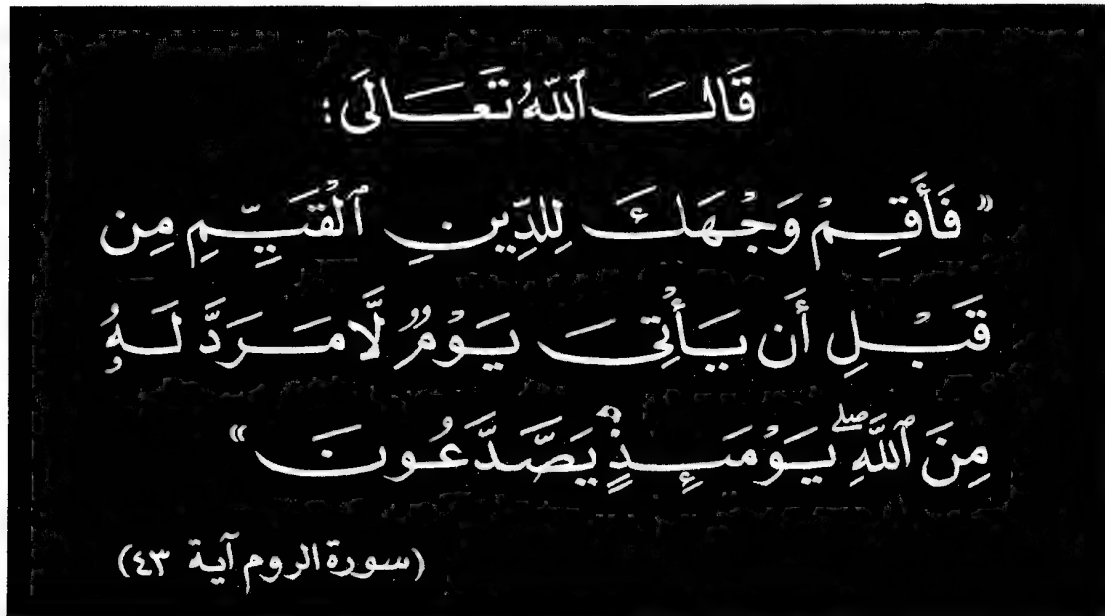 قَالَ ٱللَّهُ تَعَالَى:
« فَأَقِمْ وَجْهَكَ لِلدِّينِ ٱلْقَيِّمِ مِن
قَبْلِ أَن يَأْتِىَ يَوْمٌ لَّا مَرَدَّ لَهُۥ
مِنَ ٱللَّهِ ۖ يَوْمَئِذٍ يَصَّدَّعُونَ »
(سورة الروم آية ٤٣)